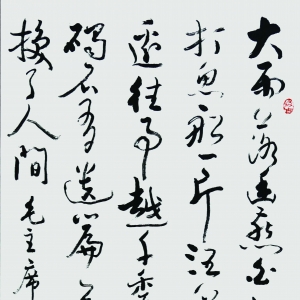 大雨落幽燕白
打魚船一片汪
邊往事越千年
碣石有遺篇
換了人間 毛主席